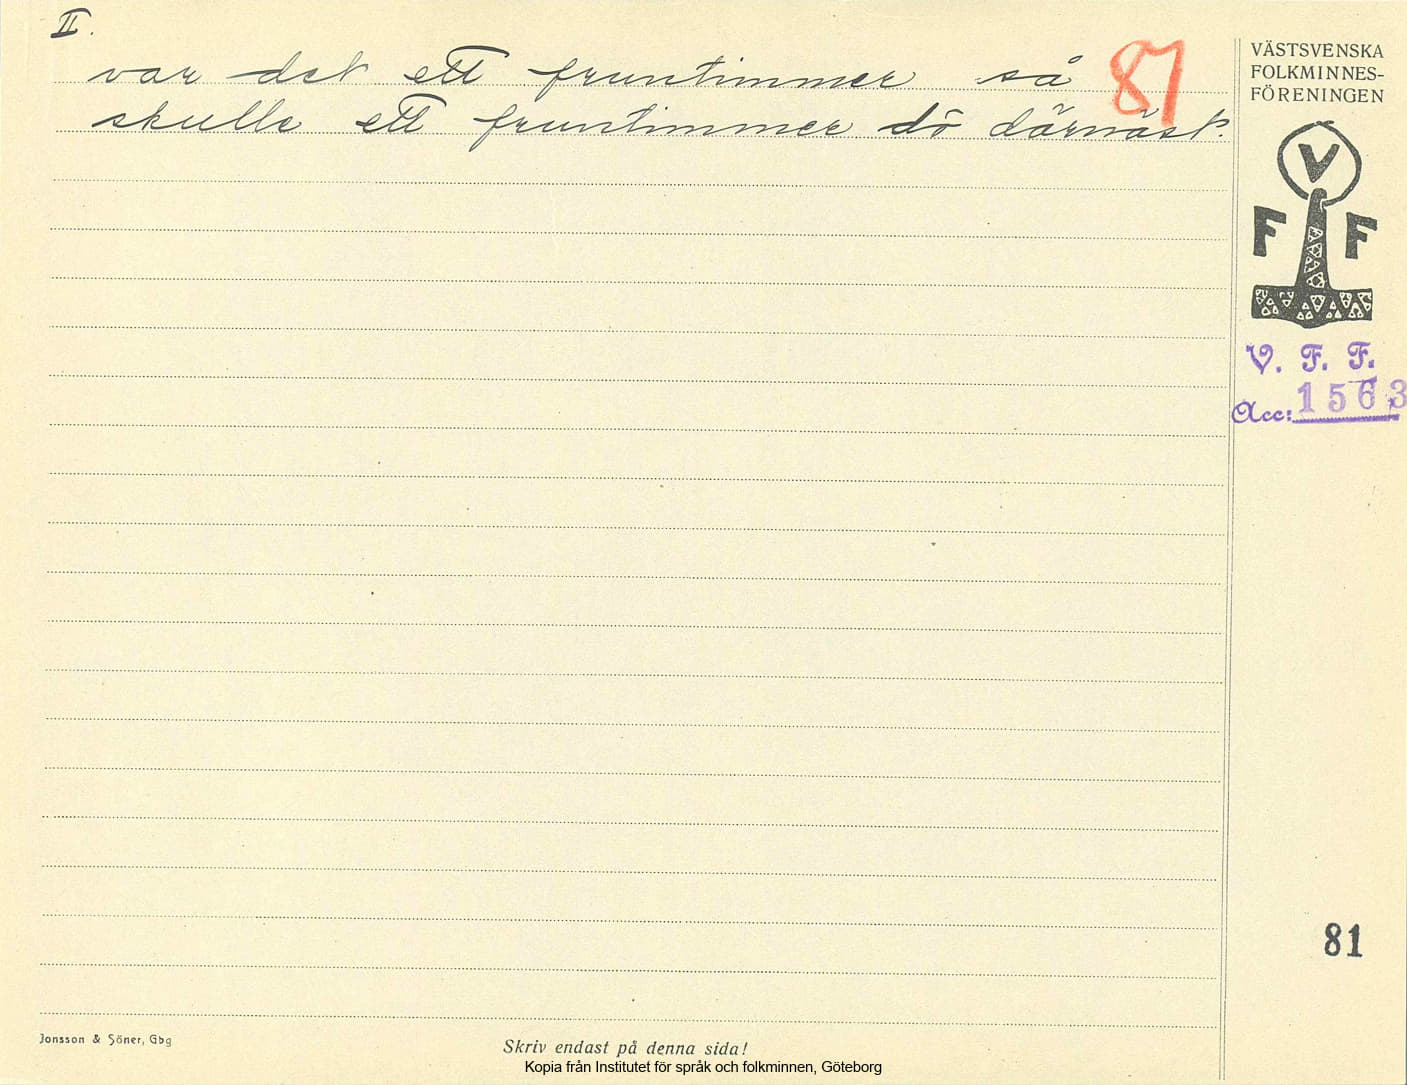 II.
var det ett fruntimmer så
skulle ett fruntimmer dö därnäst.
87
VÄSTSVENSKA
FOLKMINNES-
FÖRENINGEN
V
F F
V. F. F.
Acc: 1563
81
Jonsson & Söner, Gbg
Skriv endast på denna sida!
Kopia från Institutet för språk och folkminnen, Göteborg